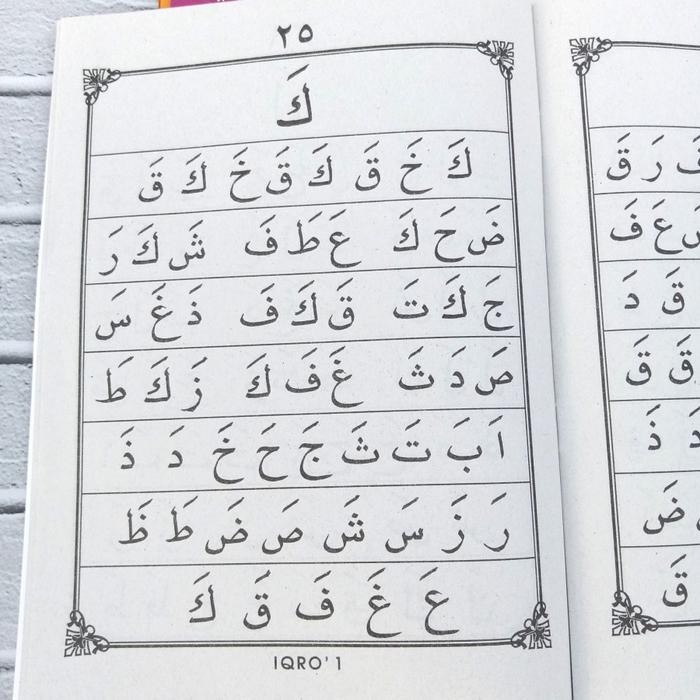 ٢٥
كَ
كَ خَ قَ كَ قَ خَ كَ قَ
ضَ حَ كَ عَ طَ فَ شَ كَ رَ
جَ كَ تَ قَ كَ فَ ذَ غَ سَ
صَ دَ ثَ غَ فَ كَ زَ كَ طَ
اَ بَ تَ ثَ جَ حَ خَ دَ ذَ
رَ زَ سَ شَ صَ ضَ طَ ظَ
عَ غَ فَ قَ كَ
IQRO' 1
رَ قَ
عَ فَ
قَ دَ
قَ قَ
ذَ
ضَ
قَ